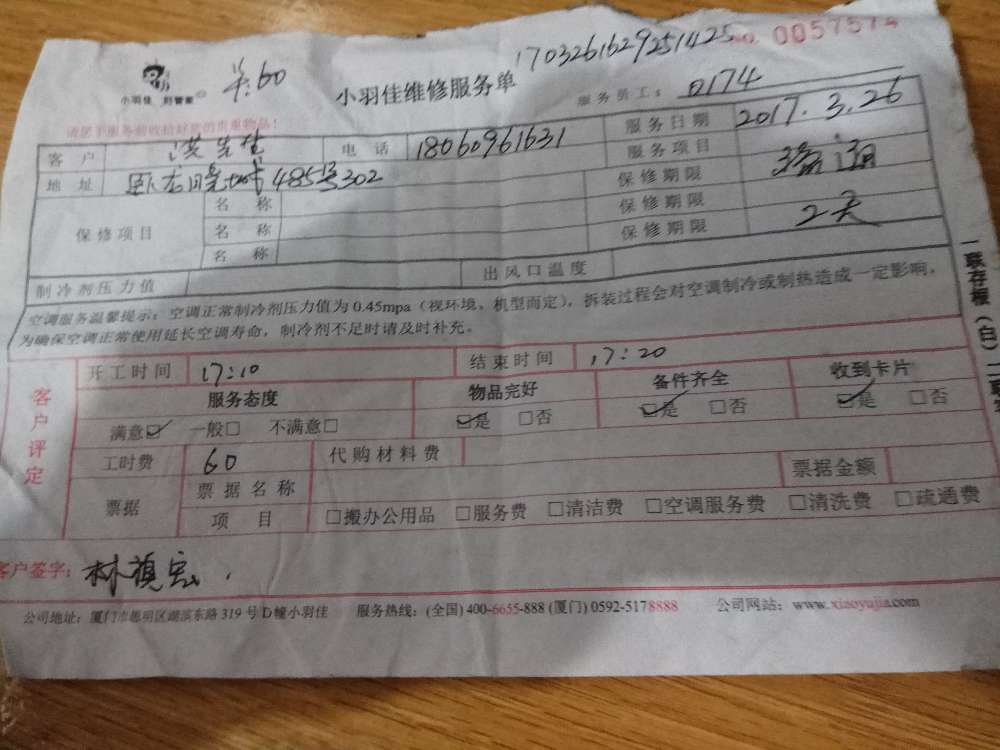 1703261629251425 No. 0057574
小羽佳 好管家
共:60
小羽佳维修服务单
服务员工: 0174
客户 洪先生 电话 18060961631 服务日期 2017.3.26
地址 485号302 服务项目 疏通
保修项目 名称 保修期限
名称 保修期限
名称 保修期限 2天
制冷剂压力值 出风口温度
空调服务温馨提示:空调正常制冷剂压力值为0.45mpa(视环境、机型而定),拆装过程会对空调制冷或制热造成一定影响,
为确保空调正常使用延长空调寿命,制冷剂不足时请及时补充。
开工时间 17:10 结束时间 17:20
客户评定
服务态度 物品完好 备件齐全 收到卡片
满意☑ 一般□ 不满意□ ☑是 □否 ☑是 □否 ☑是 □否
工时费 60 代购材料费 票据金额
票据 票据名称
项目 □搬办公用品 □服务费 □清洁费 □空调服务费 □清洗费 □疏通费
客户签字:林
公司地址:厦门市思明区湖滨东路319号D幢小羽佳 服务热线:(全国)400-6655-888 (厦门)0592-5178888 公司网站:www.xiaoyujia.com
一联存根(白)二联